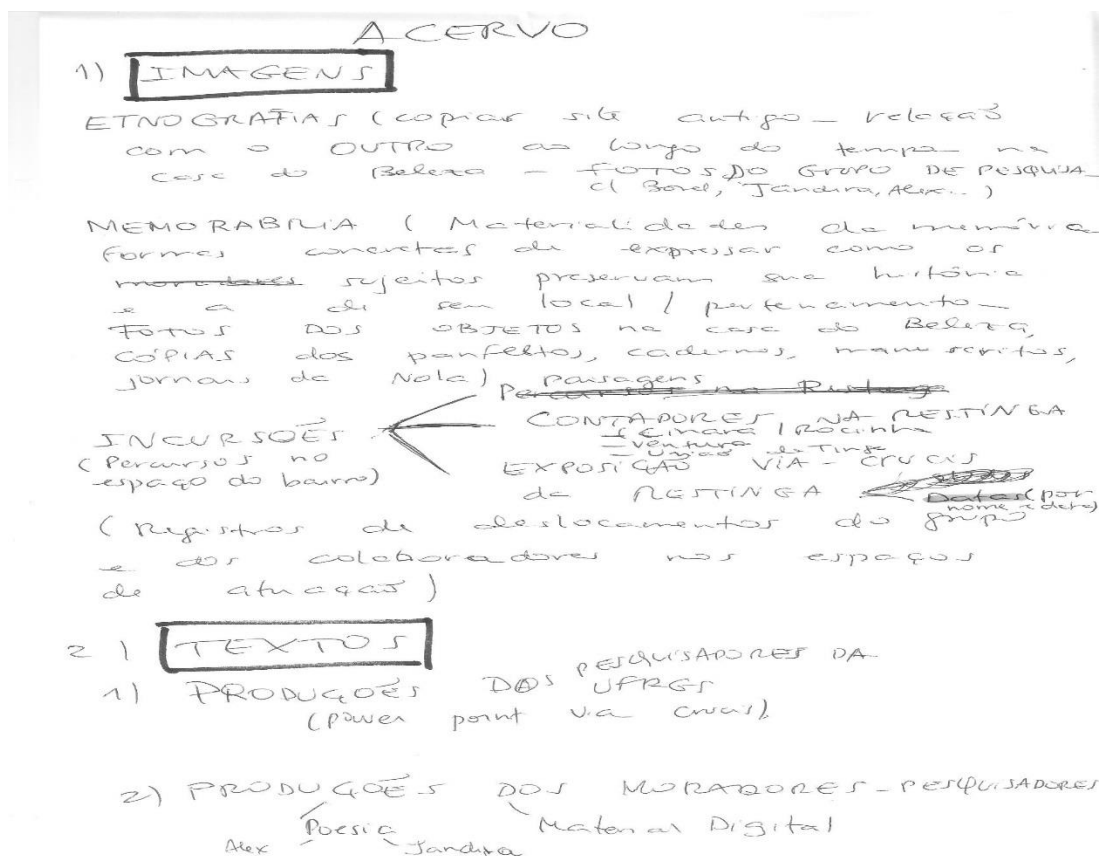 ACERVO
1) IMAGENS
ETNOGRAFIAS (copiar site antigo – relação
com o OUTRO ao longo do tempo na
casa do Beleza – FOTOS DO GRUPO DE PESQUISA
c/ Borel, Jandira, Alex...)
MEMORABILIA (Materialidades da memória
Formas concretas de expressar como os
moradores sujeitos preservam sua história
e a de seu local / pertencimento –
FOTOS DOS OBJETOS na casa do Beleza,
CÓPIAS dos panfletos, cadernos, manuscritos,
jornais da Nola)
Paisagens
Percursos na Restinga
INCURSÕES
(Percursos no
espaço do bairro)
CONTADORES NA RESTINGA
– Cinara / Rocinha
– Ventura
– União da Tinga
EXPOSIÇÃO VIA-CRUCIS
da RESTINGA
Datas (por
nome e data)
(Registros de deslocamentos do grupo
e dos colaboradores nos espaços
de atuação)
2) TEXTOS
1) PRODUÇÕES DOS PESQUISADORES DA
UFRGS
(power point via crucis)
2) PRODUÇÕES DOS MORADORES-PESQUISADORES
Poesia Material Digital
Alex Jandira